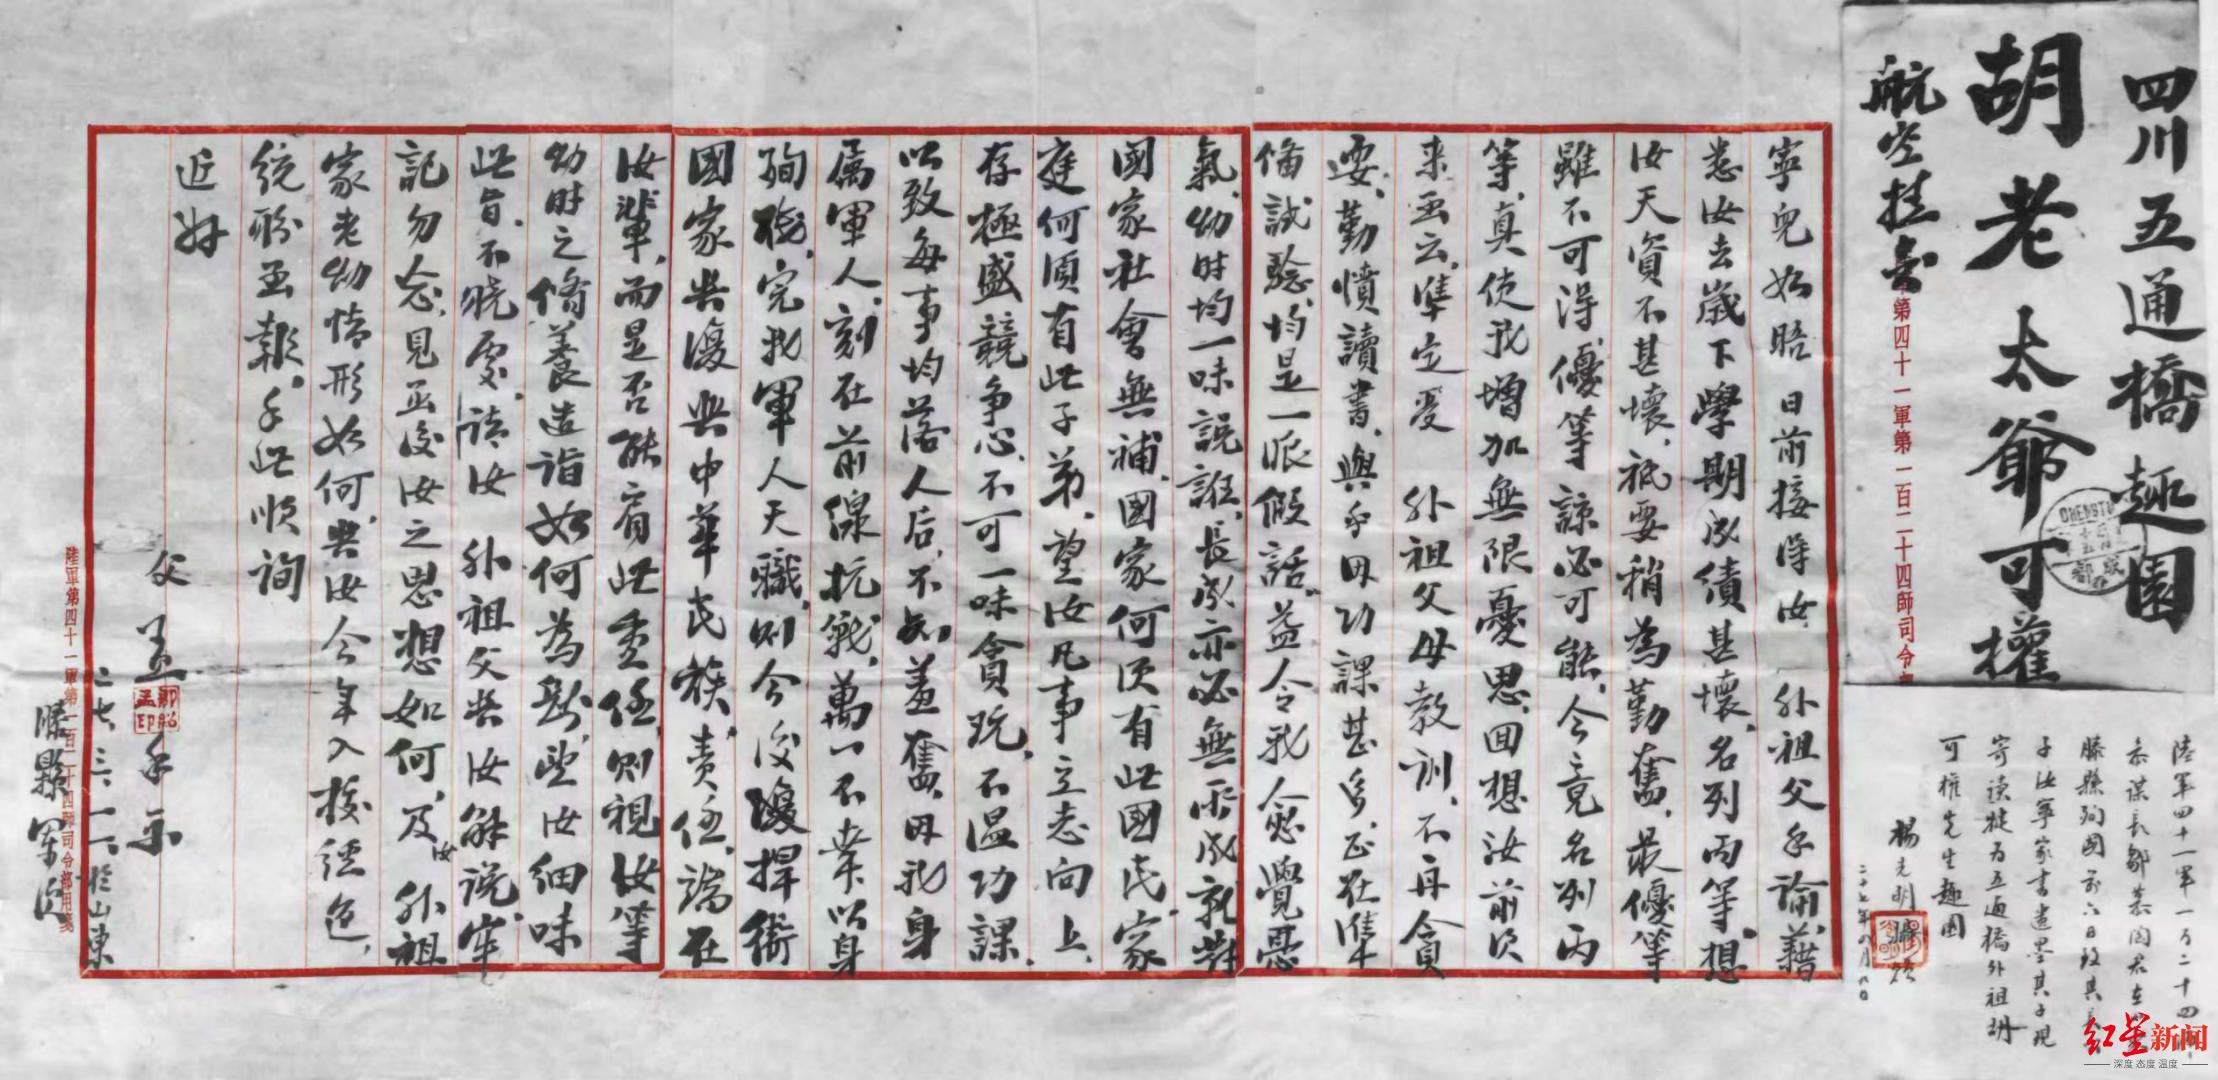 四川五通橋趣園
胡老太爺可權
航空挂号
第四十一軍第一百二十四師司令部
CHENGTU
成都
寧兒如晤日前接得汝 外祖父手諭藉
悉汝去歲下學期成績甚壞名列丙等想
汝天資不甚壞祇要稍為勤奮最優等
雖不可得優等諒必可能今竟名列丙
等真使我增加無限憂思回想汝前次
来函云準定受 外祖父母教訓不再貪
耍勤憤讀書與手母功課甚多正在準
備試驗均是一派假話益令我愈覺憂
氣幼時均一味說誑長成亦必無所成就對
國家社會無補國家何須有此國民家
庭何須有此子弟望汝凡事立志向上
存極盛競争心不可一味貪玩不温功課
以致每事均落人后不知羞奮毋我身
属軍人刻在前線抗戰萬一不幸以身
殉職完我軍人天職則今後復捍衛
國家與復興中華民族責任端在
汝輩而是否能肩此重任則視汝等
幼時之脩養造詣如何為斷望汝細味
此旨不曉處請汝 外祖父與汝解說牢
記勿忘見函後汝之思想如何及汝外祖
家老幼情形如何與汝今年入校經過
統盼函報手此順詢
近好
父 孟 手示
二七、三、一一、於山東
滕縣軍次
陸軍第四十一軍第一百二十四師司令部用箋
陸軍四十一軍一百二十四師
参謀長鄒慕陶君在
滕縣殉國前六日致其長
子汝寧家書遺墨其子現
寄讀犍為五通橋外祖胡
可權先生趣園
楊光明
二十七年八月八日
红星新闻
深度 态度 温度